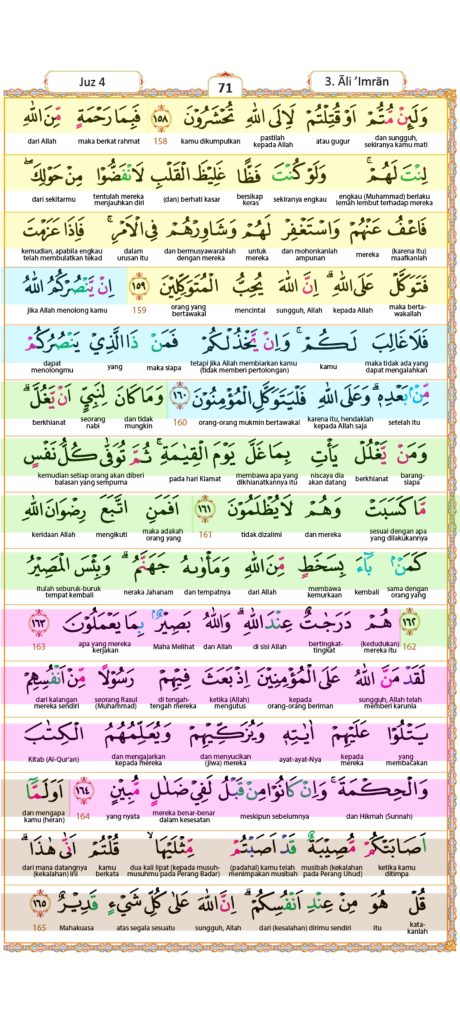 Juz 4
71
3. Āli ʻImrān
وَلَىِٕنْ مُّتُّمْ اَوْ قُتِلْتُمْ لَاِلَى اللّٰهِ تُحْشَرُوْنَ ١٥٨ فَبِمَا رَحْمَةٍ مِّنَ اللّٰهِ
pastilah dan sungguh,
dari Allah maka berkat rahmat 158 kamu dikumpulkan kepada Allah atau gugur sekiranya kamu mati
لِنْتَ لَهُمْ ۚ وَلَوْ كُنْتَ فَظًّا غَلِيْظَ الْقَلْبِ لَانْفَضُّوْا مِنْ حَوْلِكَ ۖ
tentulah mereka bersikap engkau (Muhammad) berlaku
dari sekitarmu menjauhkan diri (dan) berhati kasar keras sekiranya engkau lemah lembut terhadap mereka
فَاعْفُ عَنْهُمْ وَاسْتَغْفِرْ لَهُمْ وَشَاوِرْهُمْ فِى الْاَمْرِ ۚ فَاِذَا عَزَمْتَ
kemudian, apabila engkau dalam dan bermusyawarahlah untuk dan mohonkanlah (karena itu)
telah membulatkan tekad urusan itu dengan mereka mereka ampunan maafkanlah mereka
فَتَوَكَّلْ عَلَى اللّٰهِ ۗ اِنَّ اللّٰهَ يُحِبُّ الْمُتَوَكِّلِيْنَ ١٥٩ اِنْ يَّنْصُرْكُمُ اللّٰهُ
orang yang maka berta-
jika Allah menolong kamu 159 bertawakal mencintai sungguh, Allah kepada Allah wakallah
فَلَا غَالِبَ لَكُمْ ۚ وَاِنْ يَّخْذُلْكُمْ فَمَنْ ذَا الَّذِيْ يَنْصُرُكُمْ
dapat tetapi jika Allah membiarkan kamu maka tidak ada yang
menolongmu yang maka siapa (tidak memberi pertolongan) kamu dapat mengalahkan
مِّنْۢ بَعْدِهٖ ۗ وَعَلَى اللّٰهِ فَلْيَتَوَكَّلِ الْمُؤْمِنُوْنَ ١٦٠ وَمَا كَانَ لِنَبِيٍّ اَنْ يَّغُلَّ ۗ
seorang dan tidak karena itu, hendaklah
berkhianat nabi mungkin 160 orang-orang mukmin bertawakal kepada Allah saja setelah itu
وَمَنْ يَّغْلُلْ يَأْتِ بِمَا غَلَّ يَوْمَ الْقِيٰمَةِ ۚ ثُمَّ تُوَفّٰى كُلُّ نَفْسٍ
kemudian setiap orang akan diberi membawa apa yang niscaya dia barang-
balasan yang sempurna pada hari Kiamat dikhianatkannya itu akan datang berkhianat siapa
مَّا كَسَبَتْ وَهُمْ لَا يُظْلَمُوْنَ ١٦١ اَفَمَنِ اتَّبَعَ رِضْوَانَ اللّٰهِ
maka adakah sesuai dengan apa
keridaan Allah mengikuti orang yang 161 tidak dizalimi dan mereka yang dilakukannya
كَمَنْۢ بَاۤءَ بِسَخَطٍ مِّنَ اللّٰهِ وَمَأْوٰىهُ جَهَنَّمُ ۗ وَبِئْسَ الْمَصِيْرُ
itulah seburuk-buruk membawa sama dengan
tempat kembali neraka Jahanam dan tempatnya dari Allah kemurkaan kembali orang yang
١٦٢ هُمْ دَرَجٰتٌ عِنْدَ اللّٰهِ ۗ وَاللّٰهُ بَصِيْرٌۢ بِمَا يَعْمَلُوْنَ ١٦٣
apa yang mereka bertingkat- (kedudukan)
163 kerjakan Maha Melihat dan Allah di sisi Allah tingkat mereka itu 162
لَقَدْ مَنَّ اللّٰهُ عَلَى الْمُؤْمِنِيْنَ اِذْ بَعَثَ فِيْهِمْ رَسُوْلًا مِّنْ اَنْفُسِهِمْ
dari kalangan seorang Rasul di tengah- ketika (Allah) kepada sungguh, Allah telah
mereka sendiri (Muhammad) tengah mereka mengutus orang-orang beriman memberi karunia
يَتْلُوْا عَلَيْهِمْ اٰيٰتِهٖ وَيُزَكِّيْهِمْ وَيُعَلِّمُهُمُ الْكِتٰبَ
dan mengajarkan dan menyucikan kepada yang
Kitab (Al-Qur'an) kepada mereka (jiwa) mereka ayat-ayat-Nya mereka membacakan
وَالْحِكْمَةَ ۚ وَاِنْ كَانُوْا مِنْ قَبْلُ لَفِيْ ضَلٰلٍ مُّبِيْنٍ ١٦٤ اَوَلَمَّآ
dan mengapa mereka benar-benar
kamu (heran) 164 yang nyata dalam kesesatan meskipun sebelumnya dan Hikmah (Sunnah)
اَصَابَتْكُمْ مُّصِيْبَةٌ قَدْ اَصَبْتُمْ مِّثْلَيْهَا ۙ قُلْتُمْ اَنّٰى هٰذَا ۗ
dari mana datangnya kamu dua kali lipat (kepada musuh- (padahal) kamu telah musibah (kekalahan ketika kamu
(kekalahan) ini berkata musuhmu pada Perang Badar) menimpakan musibah pada Perang Uhud) ditimpa
قُلْ هُوَ مِنْ عِنْدِ اَنْفُسِكُمْ ۗ اِنَّ اللّٰهَ عَلٰى كُلِّ شَيْءٍ قَدِيْرٌ ١٦٥
kata-
165 Mahakuasa atas segala sesuatu sungguh, Allah dari (kesalahan) dirimu sendiri itu kanlah